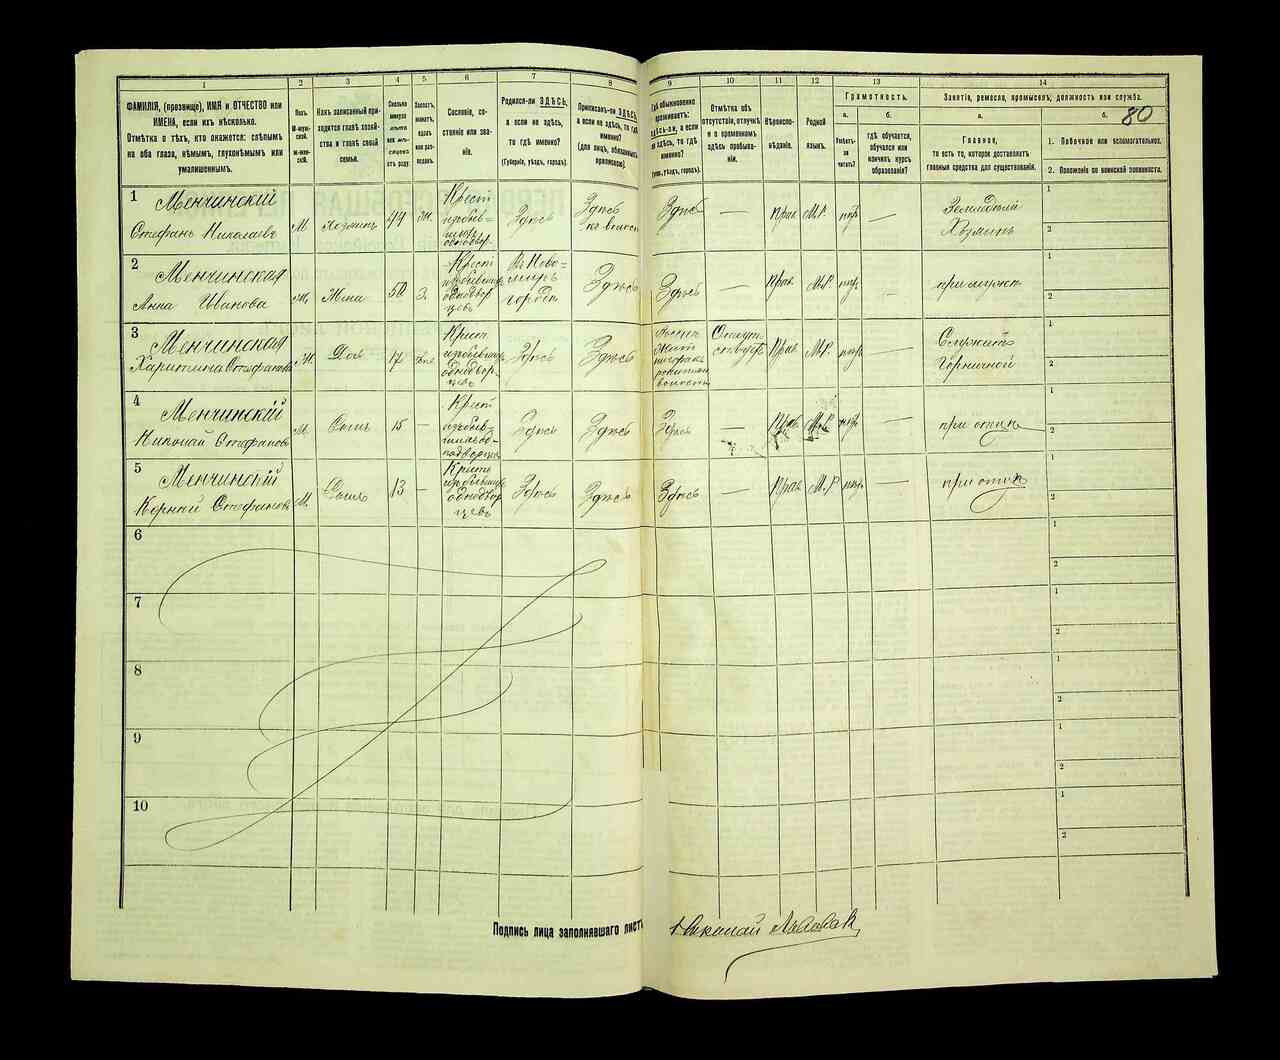 1 2 3 4 5. 6 7 8 9 10 11 12 13 14
ФАМИЛІЯ, (прозвище), ИМЯ и ОТЧЕСТВО или
ИМЕНА, если ихъ нѣсколько.
Отмѣтка о тѣхъ, кто окажется: слѣпымъ
на оба глаза, нѣмымъ, глухонѣмымъ или
умалишеннымъ.
Полъ.
М-муж-
ской.
Ж-жен-
ской.
Какъ записанный при-
ходится главѣ хозяй-
ства и главѣ своей
семьи.
Сколько
минуло
лѣтъ
или мѣ-
сяцевъ
отъ роду
Холостъ,
женатъ,
вдовъ
или раз-
веденъ.
Сословіе, со-
стояніе или зва-
ніе.
Родился-ли ЗДѢСЬ,
а если не здѣсь,
то гдѣ именно?
(Губернія, уѣздъ, городъ).
Приписанъ-ли ЗДѢСЬ,
а если не здѣсь, то гдѣ
именно?
(для лицъ, обязанныхъ
припискою).
Гдѣ обыкновенно
проживаетъ:
здѣсь-ли, а если
не здѣсь, то гдѣ
именно?
(Губ., уѣздъ, городъ).
Отмѣтка объ
отсутствіи, отлучкѣ
и о временномъ
здѣсь пребыва-
ніи.
Вѣроиспо-
вѣданіе.
Родной
языкъ.
Грамотность.
а. б.
Умѣетъ-
ли
читать?
гдѣ обучается,
обучался или
кончилъ курсъ
образованія?
Занятіе, ремесло, промыселъ, должность или служба.
а. б.
80
Главное,
то есть то, которое доставляетъ
главныя средства для существованія.
1. Побочное или вспомогательное.
2. Положеніе по воинской повинности.
1 Менчинскій
Стефанъ Николаевъ
М Хозяинъ 44 Ж.
Крест
избывш=
ихъ
однодвор
Здѣсь
Здѣсь
Здѣсь — Прав М.Р. —
1
2
2 Менчинская
Анна Иванова
Ж. Жена 50 З.
Крест
избывших
однодвор
цевъ
городѣ
Здѣсь
Здѣсь — Прав М.Р —
при мужѣ
1
2
3 Менчинская
Харитина Стефанова
Ж Дочь 17
Крест
избывших
однодвор-
цевъ
Здѣсь Здѣсь
Отсут
ствуетъ
Прав М.Р. —
Служитъ
Горничной
1
2
4 Менчинскій
Николай Стефановъ
М Сынъ 15 —
Крест
Здѣсь Здѣсь Здѣсь — Прав М.Р. —
при отцѣ
1
2
5 Менчинскій
Корній Стефановъ
М. Сынъ 13 —
избывших
однодвор
цевъ
Здѣсь Здѣсь Здѣсь — Прав М.Р —
при отцѣ
1
2
6
1
2
7
1
2
8
1
2
9
1
2
10
1
2
Подпись лица заполнявшаго листъ
Николай